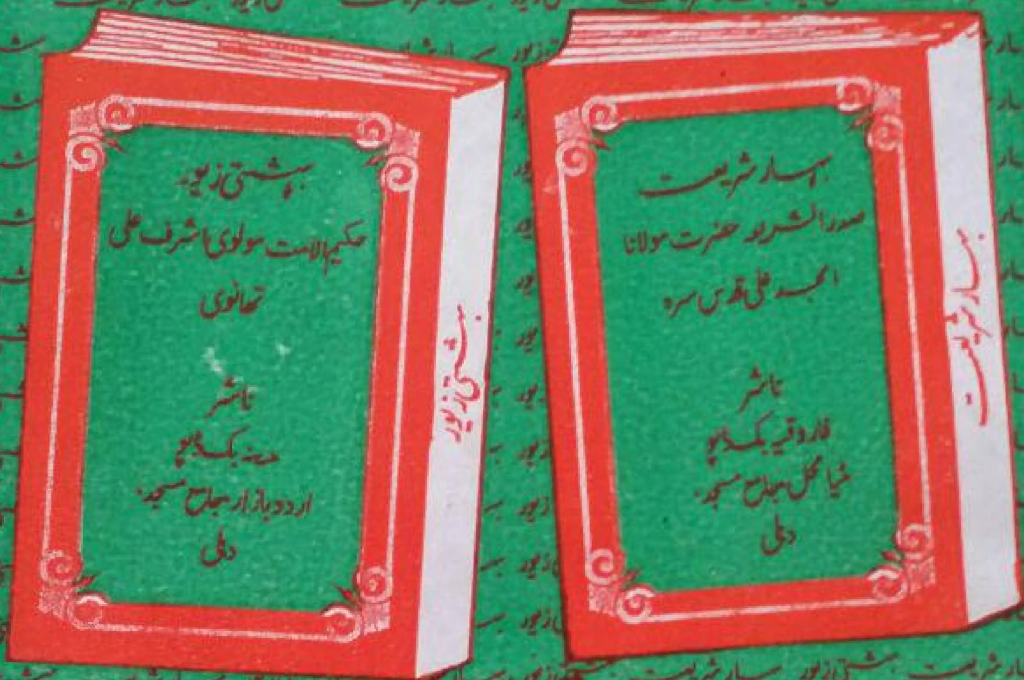 بہشتی زیور
حکیم الامت مولوی اشرف علی
تھانوی
ناشر
مدینہ بکڈپو
اردو بازار جامع مسجد۔
دہلی
بہشتی زیور
بہار شریعت
صدر الشریعہ حضرت مولانا
امجد علی قدس سرہ
ناشر
فاروقیہ بکڈپو
مٹیا محل جامع مسجد۔
دہلی
بہار شریعت